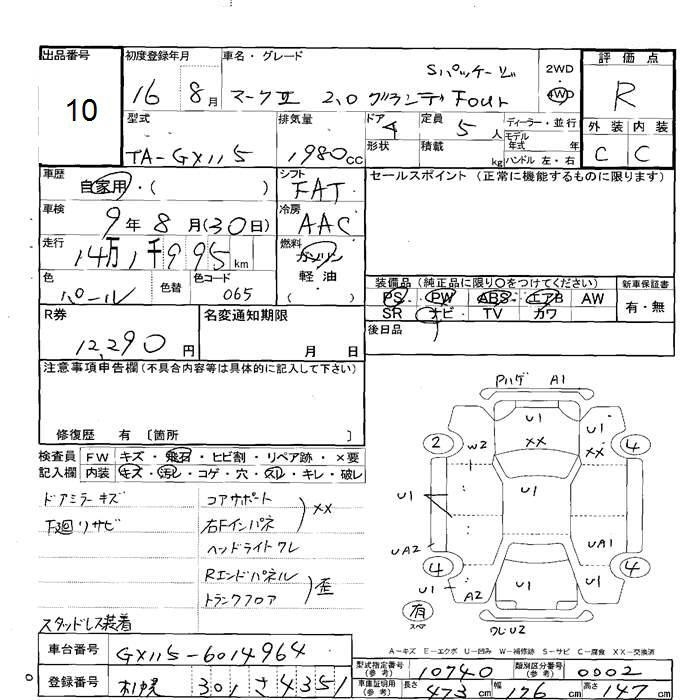 出品番号 初度登録年月 車名・グレード 評価点
10 16 8月 マークⅡ 2.0 グランデFour Sパッケージ 2WD 4WD R
型式 排気量 ドア 4 定員 5人 ディーラー・並行 外装 内装
TA-GX115 1980cc 形状 積載 kg モデル年式 年 ハンドル 左・右 C C
車歴 自家用・( ) シフト FAT セールスポイント (正常に機能するものに限ります)
車検 9年8月(30日) 冷房 AAC
走行 14万1千995km 燃料 ガソリン・軽油 ( )
色 パール 色替 色コード 065
装備品 (純正品に限り○をつけてください) 新車保証書
PS PW ABS エアB AW 有・無
SR ナビ TV カワ
R券 12,290円 名変通知期限 月 日 後日品
注意事項申告欄(不具合内容等は具体的に記入して下さい)
修復歴 有 〔箇所 〕
検査員 FW キズ・飛石・ヒビ割・リペア跡・×要
記入欄 内装 キズ・汚し・コゲ・穴・スレ・キレ・破レ
ドアミラーキズ
下廻リサビ
コアサポート
右Fインパネ
XX
ヘッドライトワレ
Rエンドパネル
トランクフロア
歪
スタッドレス装着
Pハゲ A1
U1
XX
U1
XX
2
W2
4
U1
U1
UA2
UA1
4
4
U1
A2
U1
U1
有
スペア
ワレU2
A-キズ E-エクボ U-凹み W-補修跡 S-サビ C-腐食 XX-交換済
車台番号 GX115-6014964
型式指定番号(参考) 10740 類別区分番号(参考) 0002
登録番号 札幌 301 さ 4351
車庫証明用(参考) 長さ 473cm 幅 176cm 高さ 147cm